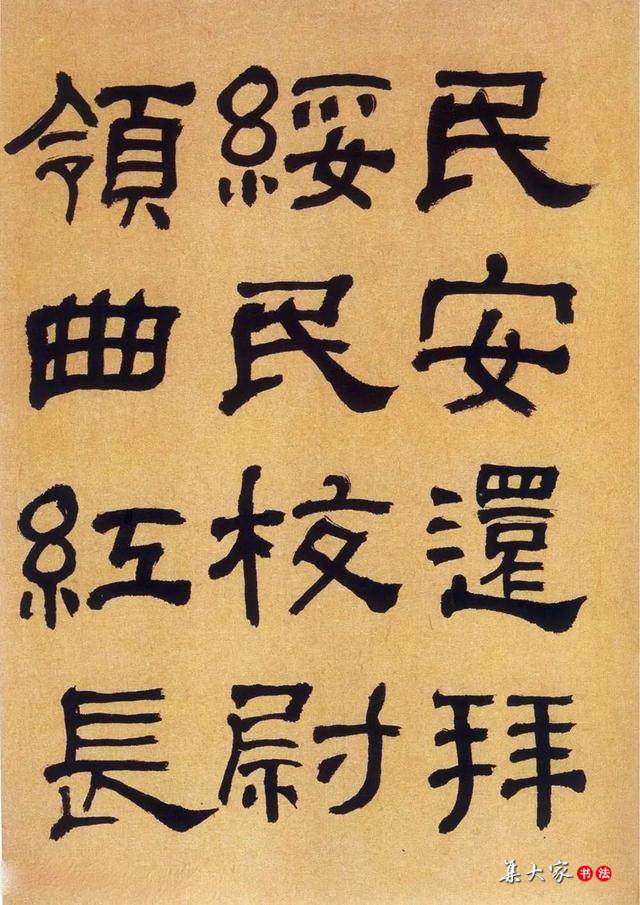 民安還拜
綏民校尉
領曲紅長
集大家书法